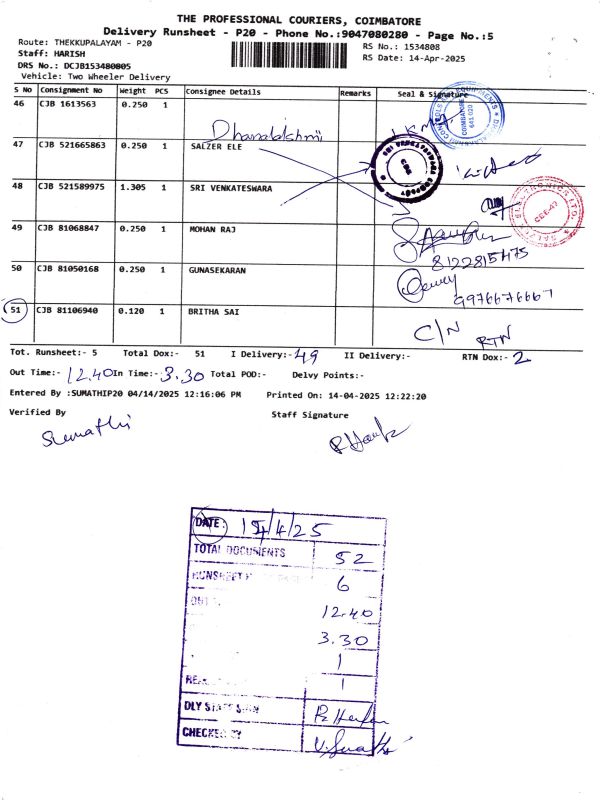 THE PROFESSIONAL COURIERS, COIMBATORE
Delivery Runsheet - P20 - Phone No.:9047080280 - Page No.:5
Route: THEKKUPALAYAM - P20
RS No.: 1534808
Staff: HARISH
RS Date: 14-Apr-2025
DRS No.: DCJB153480805
Vehicle: Two Wheeler Delivery
S No Consignment No Weight PCS Consignee Details Remarks Seal & Signature
46 CJB 1613563 0.250 1
Dhanalakshmi
47 CJB 521665863 0.250 1 SALZER ELE
48 CJB 521589975 1.305 1 SRI VENKATESWARA
49 CJB 81068847 0.250 1 MOHAN RAJ
8122815475
50 CJB 81050168 0.250 1 GUNASEKARAN
9976676667
51 CJB 81106940 0.120 1 BRITHA SAI
C/N RTN
Tot. Runsheet:- 5 Total Dox:- 51 I Delivery:- 49 II Delivery:- RTN Dox:- 2
Out Time:- 12.40 In Time:- 3.30 Total POD:- Delvy Points:-
Entered By :SUMATHIP20 04/14/2025 12:16:06 PM Printed On: 14-04-2025 12:22:20
Verified By Staff Signature
Sumathi
DATE: /4/25
TOTAL DOCUMENTS 52
RUNSHEET 6
OUT 12.40
3.30
1
1
DLY STAFF SIGN
CHECKED BY V. Sumathi